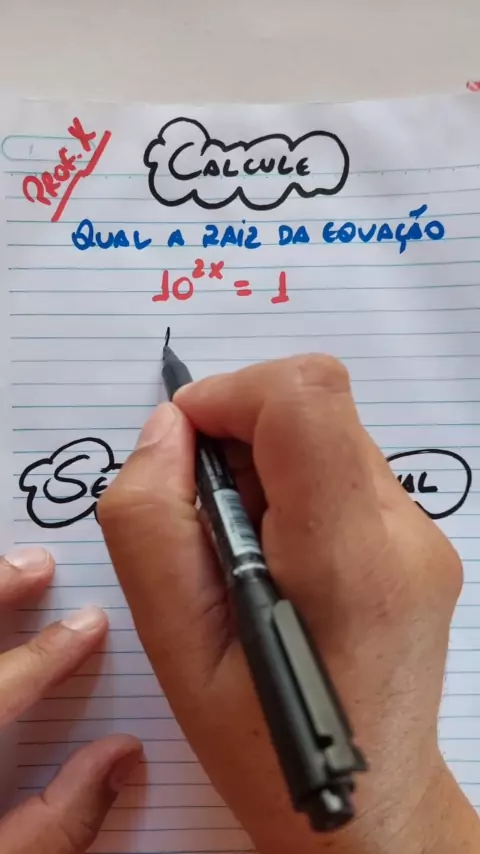 PROF. X
CALCULE
QUAL A RAIZ DA EQUAÇÃO
10²ˣ = 1